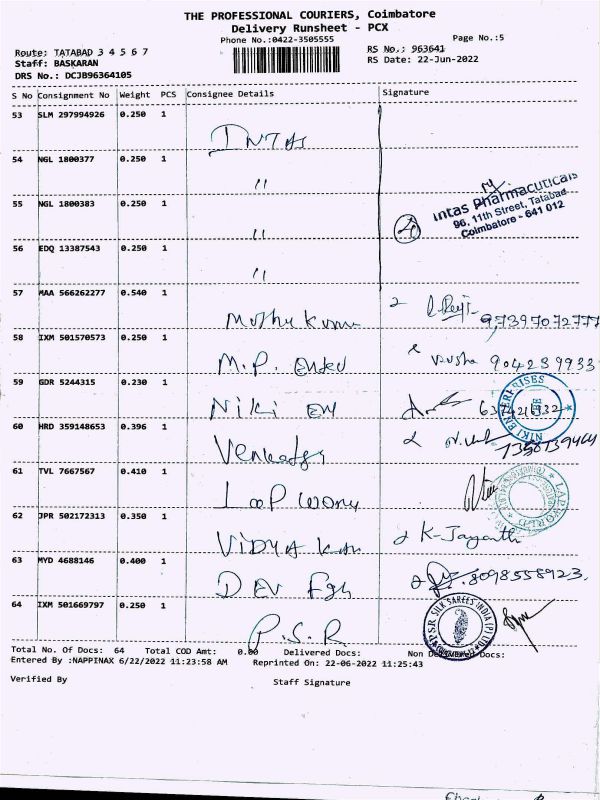 THE PROFESSIONAL COURIERS, Coimbatore
Delivery Runsheet - PCX
Phone No.:0422-3505555
Page No.:5
Route: TATABAD 3 4 5 6 7
RS No.: 963641
Staff: BASKARAN
RS Date: 22-Jun-2022
DRS No.: DCJB96364105
S No Consignment No Weight PCS Consignee Details Signature
53 SLM 297994926 0.250 1
INTAS
54 NGL 1800377 0.250 1
"
Intas Pharmaceuticals
96, 11th Street, Tatabad
Coimbatore - 641 012
55 NGL 1800383 0.250 1
"
56 EDQ 13387543 0.250 1
"
57 MAA 566262277 0.540 1
Muthu Kumar
9739707277
58 IXM 501570573 0.250 1
M.P. 904239933
59 GDR 5244315 0.230 1
Niki
NIKI ENTERPRISES
60 HRD 359148653 0.396 1
61 TVL 7667567 0.410 1
Lap World
LAPWORLD
62 JPR 502172313 0.350 1
VIDYA K-Jayanthi
63 MVD 4688146 0.400 1
DEV 8098558923.
64 IXM 501669797 0.250 1
P.S.R
P.S.R SILK SAREES INDIA (P) LTD
Total No. Of Docs: 64 Total COD Amt: 0.00 Delivered Docs: Non Delivered Docs:
Entered By :NAPPINAX 6/22/2022 11:23:58 AM Reprinted On: 22-06-2022 11:25:43
Verified By Staff Signature